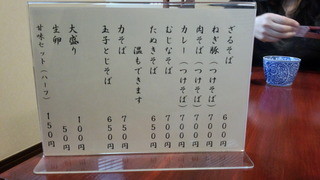 ざるそば 600
ねぎ豚(つけそば) 700
肉そば(つけそば) 700
カレー(つけそば) 700
むじなそば 700
たぬきそば 650
温もできます
力そば 750
玉子とじそば 650
大盛り 100
生卵 50
甘味セット(ハーフ) 150